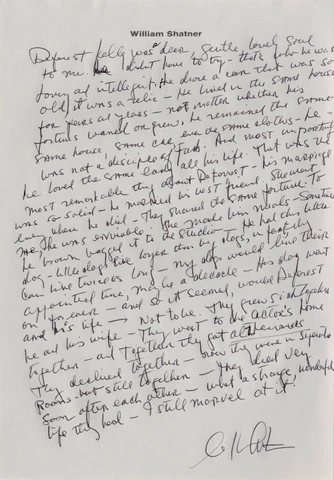 William Shatner
Deforest Kelly was a dear, gentle, lovely soul
to me. He didn't have to try - that's who he was
loving and intelligent. He drove a car that was so
old, it was a relic - He lived in the same house
for years and years - not matter whether his
fortunes waned or grew. He remained the same
same house, same car, even the same clothes - he
was not a disciple of fads. And most importantly
he loved the same lady all his life. That was the
most remarkable thing about Deforest - his marriage
was so solid - he married his best friend. She went
every where he did - They shared the same fortune - To
me, she was enviable. She made him meals - Sometimes
he brown bagged it to the studio - He had this little
dog - little dogs live longer than big dogs, in fact they
can live twice as long - my dogs would live their
appointed time, maybe a decade - His dog went
on forever - and so it seemed, would Deforest
and his wife - Not to be. They grew sick together
he and his wife - They went to the actor's home
together - and together they got
They declined together - now they were in separate
Rooms - but still together - They died very
soon after each other - what a strange wonderful
life they had - I still marvel at it!